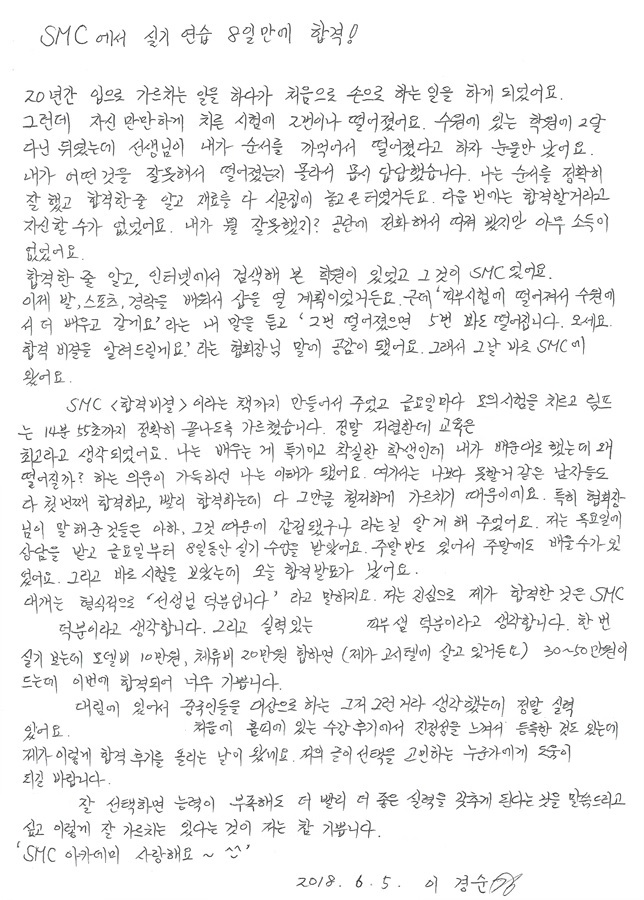 SMC에서 실기 연습 8일만에 합격!
20년간 입으로 가르치는 일을 하다가 처음으로 손으로 하는 일을 하게 되었어요.
그런데 자신만만하게 치른 시험에 2번이나 떨어졌어요. 수원에 있는 학원에 2달
다닌 뒤였는데 선생님이 내가 순서를 까먹어서 떨어졌다고 하자 눈물만 났어요.
내가 어떤것을 잘못해서 떨어졌는지 몰라서 몹시 답답했습니다. 나는 순서를 정확히
잘 했고 합격한 줄 알고 재료를 다 시골집에 놓고 온 터였거든요. 다음 번에는 합격할거라고
자신할 수가 없었어요. 내가 뭘 잘못했지? 공단에 전화해서 따져 봤지만 아무 소득이
없었어요.
합격한 줄 알고, 인터넷에서 검색해 본 학원이 있었고 그것이 SMC였어요.
이제 발, 스포츠, 경락을 배워서 샵을 열 계획이었거든요. 근데 '피부시험에 떨어져서 수원에
서 더 배우고 갈게요' 라는 내 말을 듣고 '2번 떨어졌으면 5번 봐도 떨어집니다. 오세요.
합격 비결을 알려드릴게요.' 라는 협회장님 말에 공감이 됐어요. 그래서 그날 바로 SMC에
왔어요.
SMC <합격비결>이라는 책까지 만들어서 주었고 금요일마다 모의시험을 치르고 림프
는 14분 55초까지 정확히 끝나도록 가르쳤습니다. 정말 저렴한데 교육은
최고라고 생각되었어요. 나는 배우는 게 특기이고 착실한 학생인데 내가 배운대로 했는데 왜
떨어질까? 하는 의문이 가득하던 나는 이해가 됐어요. 여기서는 나보다 못할거 같은 남자들도
다 첫번째 합격하고, 빨리 합격하는데 다 그만큼 철저하게 가르치기 때문이에요. 특히 협회장
님이 말해준 것들은 아하, 그것 때문에 감점됐구나 라는걸 알게 해 주었어요. 저는 목요일에
상담을 받고 금요일부터 8일동안 실기 수업을 받았어요. 주말반도 있어서 주말에도 배울수가 있
었어요. 그리고 바로 시험을 보았는데 오늘 합격발표가 났어요.
대개는 형식적으로 '선생님 덕분입니다' 라고 말하지요. 저는 진심으로 제가 합격한 것은 SMC
덕분이라고 생각합니다. 그리고 실력있는 피부샘 덕분이라고 생각합니다. 한 번
실기 보는데 모델비 10만원, 체류비 20만원 합하면 (제가 고시텔에 살고 있거든요) 30~50만원이
드는데 이번에 합격되어 너무 기쁩니다.
대림에 있어서 중국인들을 대상으로 하는 그저 그런거라 생각했는데 정말 실력
있어요. 처음에 홈피에 있는 수강후기에서 진정성을 느껴서 등록한 것도 있는데
제가 이렇게 합격 후기를 올리는 날이 왔네요. 저의 글이 선택을 고민하는 누군가에게 도움이
되길 바랍니다.
잘 선택하면 능력이 부족해도 더 빨리 더 좋은 실력을 갖추게 된다는 것을 말씀드리고
싶고 이렇게 잘 가르치는 있다는 것이 저는 참 기쁩니다.
'SMC 아카데미 사랑해요~ ^^'
2018. 6. 5. 이 경순